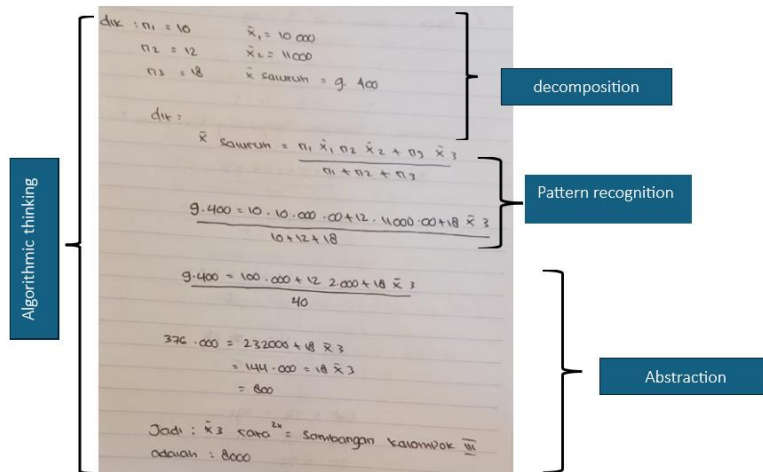 dik : n1 = 10 x̄1 = 10 000
n2 = 12 x̄2 = 11000
n3 = 18 x̄ saluruh = 9. 400
dit :
x̄ saluruh = n1 x̄1 n2 x̄2 + n3 x̄ 3
n1 + n2 + n3
9.400 = 10 . 10.000 .00 + 12 . 11000.00 + 18 x̄ 3
10 + 12 + 18
9.400 = 100.000 + 12 2.000 + 18 x̄ 3
40
376.000 = 232000 + 18 x̄ 3
= 144.000 = 18 x̄ 3
= 800
Jadi : x̄ 3 rata 2x = Sambangan kalompok III
adalah = 8000
Algorithmic thinking
decomposition
Pattern recognition
Abstraction